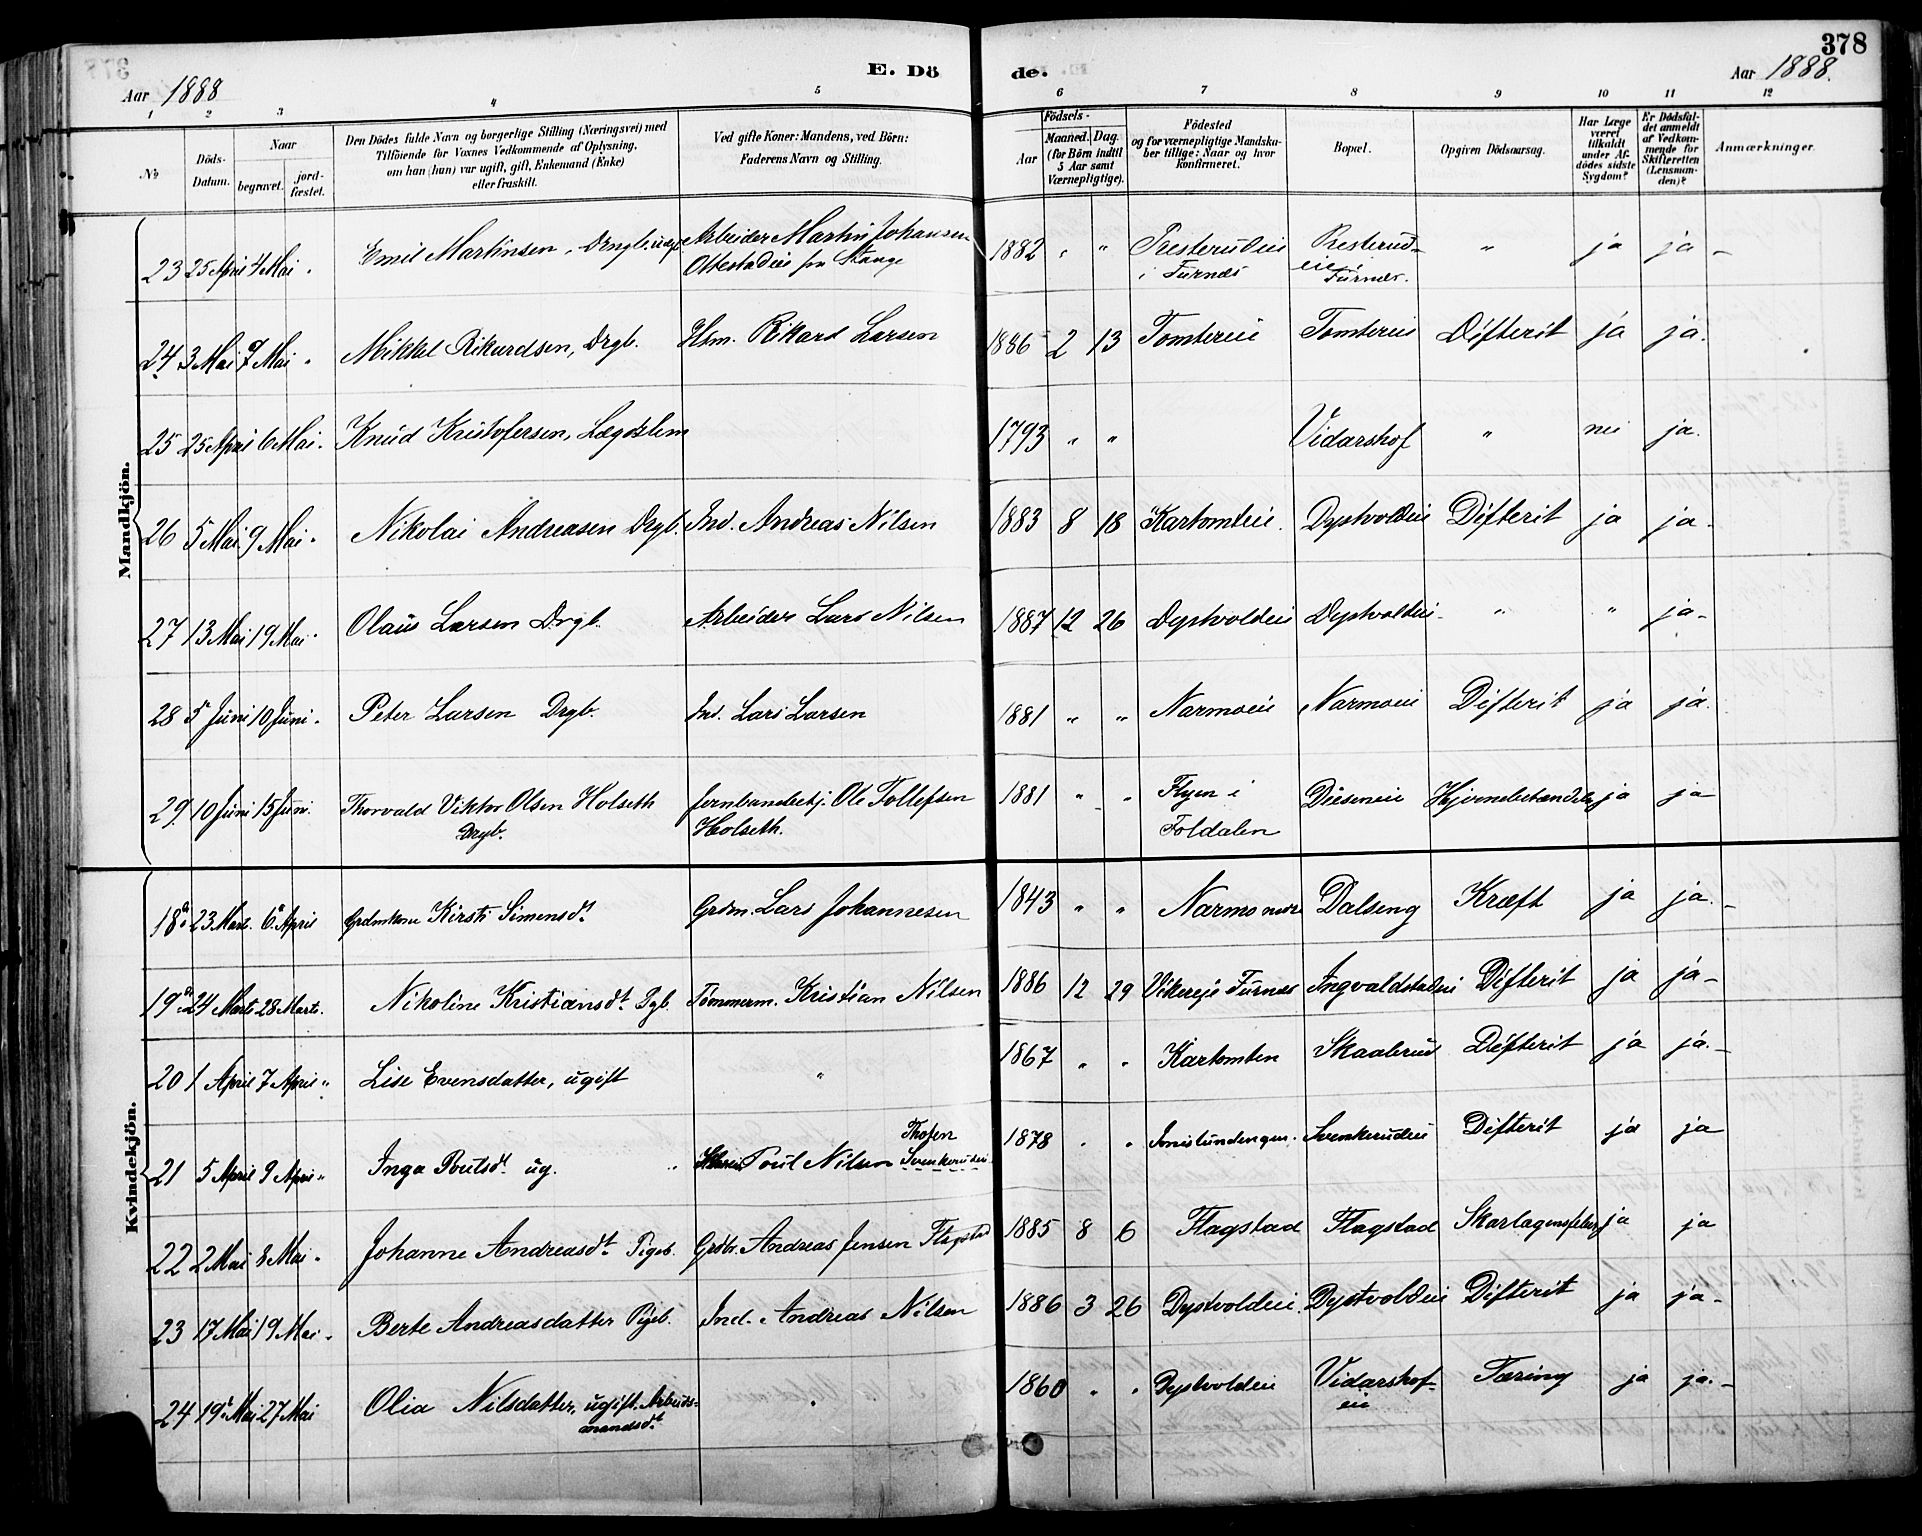 378
E. Dö de.
Aar 1888
Aar 1888.
1 2 3 4 5 6 7 8 9 10 11 12
No
Döds-Datum.
Naar begravet. jordfæstet.
Den Dödes fulde Navn og borgerlige Stilling (Næringsvei) med Tilföiende for Voxnes Vedkommende af Oplysning, om han (hun) var ugift, gift, Enkemand (Enke) eller fraskilt.
Ved gifte Koner: Mandens, ved Börn: Faderens Navn og Stilling.
Födsels-
Aar Maaned. Dag. (for Börn indtil 5 Aar samt Værnepligtige).
Födested og for værnepligtige Mandskaber tillige: Naar og hvor konfirmeret.
Bopæl.
Opgiven Dödsaarsag.
Har Læge været tilkaldt under Afdödes sidste Sygdom?
Er Dödsfaldet anmeldt af Vedkommende for Skifteretten (Lensmanden)?
Anmærkninger.
Mandkjön.
23 25 April 4 Mai " Emil Martinsen, Arbeider Martin Johansen Ottestadeie fra Stange 1882 " " Presterudeie i Furnes Presterudeie i Furnes. " ja ja -
24 3 Mai 9 Mai " Mikkel Rikardsen, Drgb. Hsm. Rikard Larsen 1886 2 13 Tomtereie Tomtereie Difterit ja ja.
25 25 April 6 Mai " Knud Kristofersen, Lægdslem 1793 " " Vidarshof " nei ja.
26 5 Mai 9 Mai " Nikolai Andreasen Drgb. Ind. Andreas Nilsen 1883 8 18 Kartomteie. Dystvoldeie Difterit ja ja -
27 13 Mai 19 Mai " Olaus Larsen Drgb. Arbeider Lars Nilsen 1887 12 26 Dystvoldeie Dystvoldeie " " ja -
28 5 Juni 10 Juni " Peter Larsen Drgb. Ind. Lars Larsen 1881 " " Narmoeie Narmoeie Difterit ja ja.
29 10 Juni 15 Juni. Thorvald Viktor Olsen Holseth Drgb. Jernbanebetj. Ole Tollefsen Holseth. 1881 " " Flyen i Foldalen Dieseneie Hjernebetændelse ja ja
Kvindekjön.
18 23 Marts. 6 April Grdmkone Kirsti Simensdt. Grdm. Lars Johannesen 1843 " " Narmo nedre Dalseng Kræft ja ja. -
19 24 Marts 28 Marts. Nikoline Kristiansdt. Pgb. Tømmerm. Kristian Nilsen 1886 12 29 Vikereje Furnes Ingvaldstadeie Difterit ja ja -
20 1 April 7 April " Lise Evensdatter, ugift " 1867 " " Kartomten Skaaberud Difterit ja ja. -
21 5 April 9 April " Inga Poulsdt. ug. " Poul Nilsen Svenkerudeie 1878 " " Svenkerudeie Difterit ja ja
22 2 Mai 8 Mai " Johanne Andreasdt. Pigeb. Grdbr. Andreas Jensen Flagstad 1885 8 6 Flagstad Flagstad Skarlagensfeber ja ja
23 17 Mai 19 Mai " Berte Andreasdatter Pigeb. Ind. Andreas Nilsen 1886 3 26 Dystvoldeie Dystvoldeie Difterit ja ja -
24 19 Mai 27 Mai Olia Nilsdatter, ugift. Arbeidsmandsdt. " 1860 " " Dystvoldeie Vidarshofeie Tæring ja ja. -